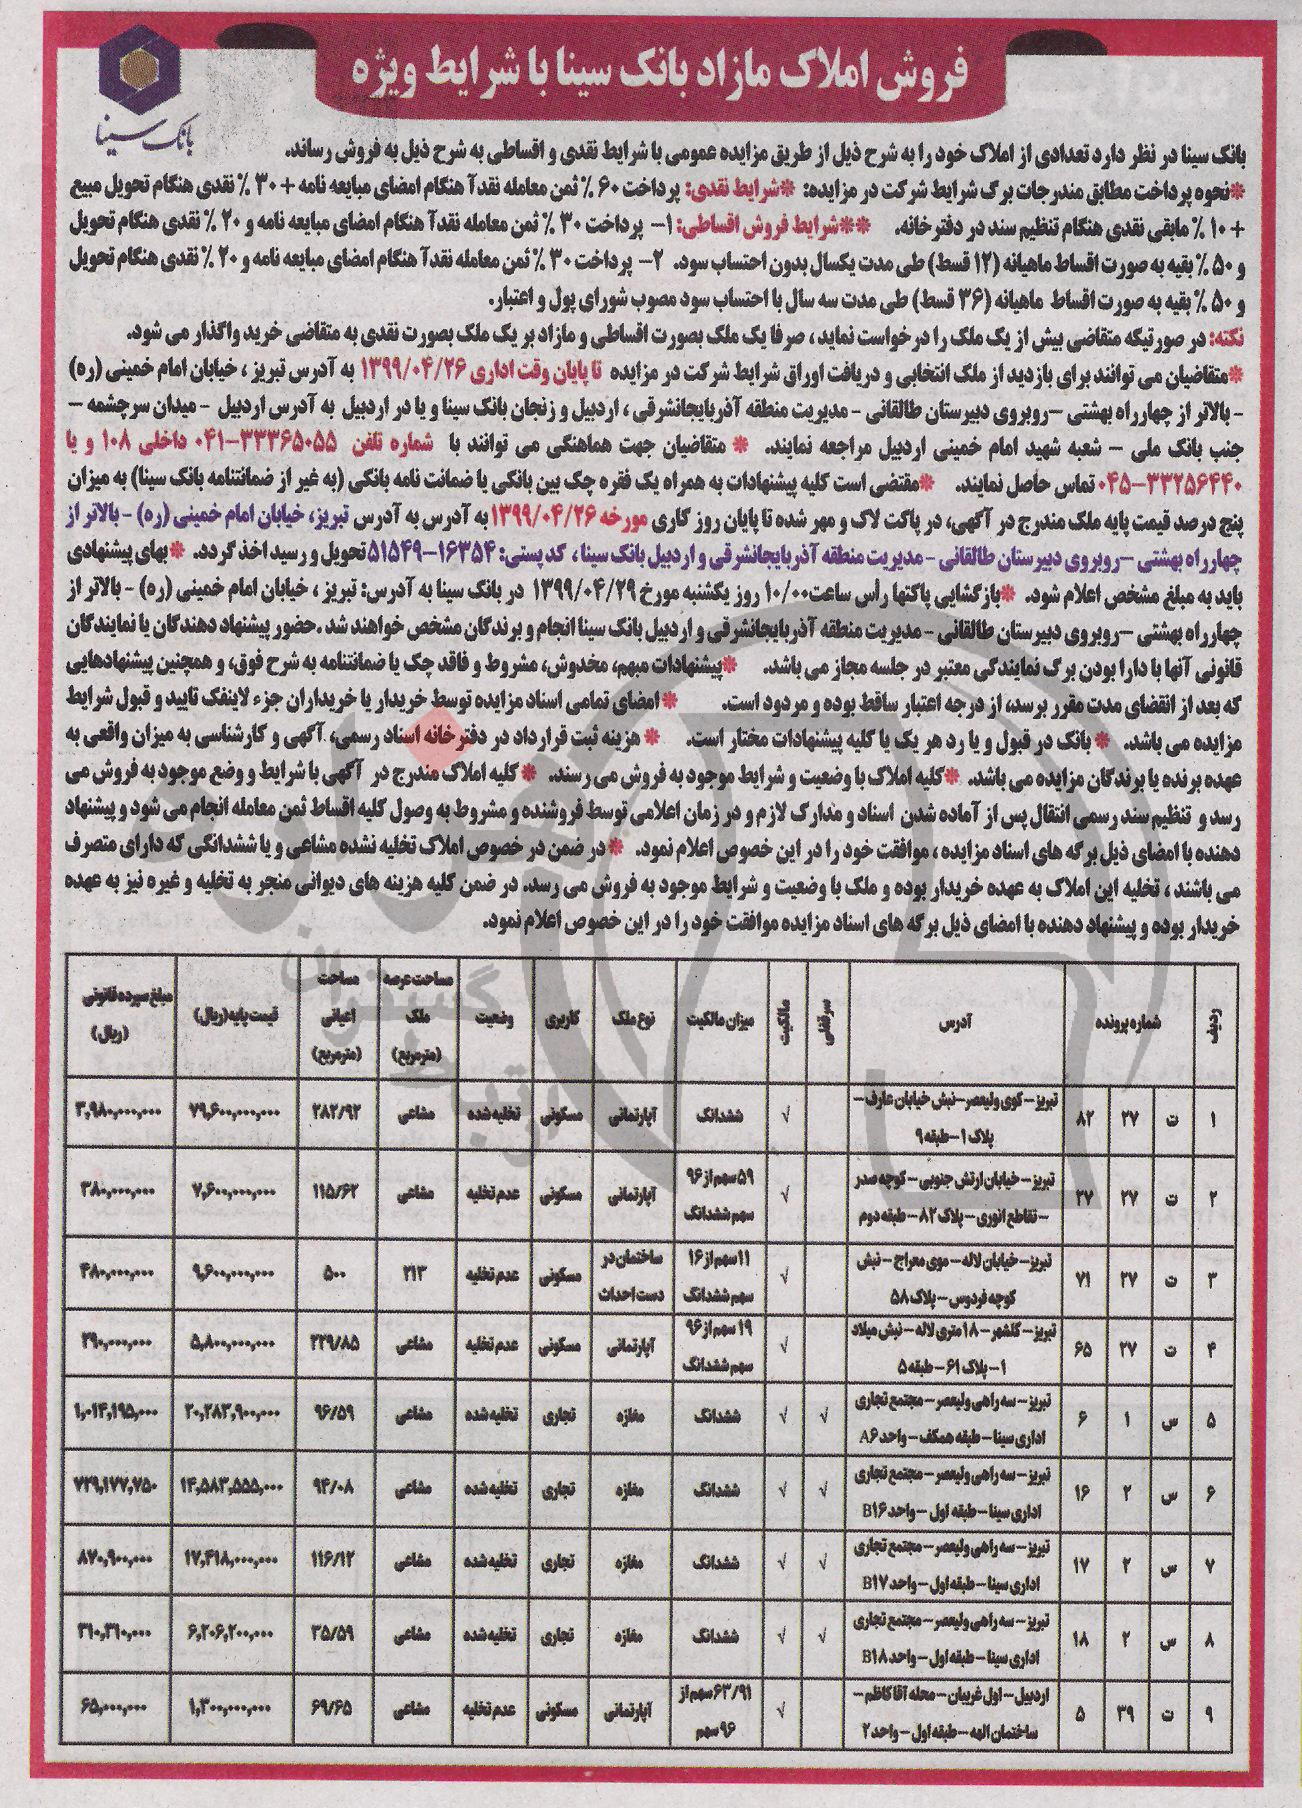 فروش املاک مازاد بانک سینا با شرایط ویژه
بانک سینا
بانک سینا در نظر دارد تعدادی از املاک خود را به شرح ذیل از طریق مزایده عمومی با شرایط نقدی و اقساطی به شرح ذیل به فروش رساند.
*نحوه پرداخت مطابق مندرجات برگ شرایط شرکت در مزایده: *شرایط نقدی: پرداخت ۶۰ ٪ ثمن معامله نقدآ هنگام امضای مبایعه نامه + ۳۰ ٪ نقدی هنگام تحویل مبیع
+ ۱۰ ٪ مابقی نقدی هنگام تنظیم سند در دفترخانه. **شرایط فروش اقساطی: ۱- پرداخت ۳۰ ٪ ثمن معامله نقدآ هنگام امضای مبایعه نامه و ۲۰ ٪ نقدی هنگام تحویل
و ۵۰ ٪ بقیه به صورت اقساط ماهیانه (۱۲ قسط) طی مدت یکسال بدون احتساب سود. ۲- پرداخت ۳۰ ٪ ثمن معامله نقدآ هنگام امضای مبایعه نامه و ۲۰ ٪ نقدی هنگام تحویل
و ۵۰ ٪ بقیه به صورت اقساط ماهیانه (۳۶ قسط) طی مدت سه سال با احتساب سود مصوب شورای پول و اعتبار.
نکته: در صورتیکه متقاضی بیش از یک ملک را درخواست نماید، صرفا یک ملک بصورت اقساطی و مازاد بر یک ملک بصورت نقدی به متقاضی خرید واگذار می شود.
*متقاضیان می توانند برای بازدید از ملک انتخابی و دریافت اوراق شرایط شرکت در مزایده تا پایان وقت اداری ۱۳۹۹/۰۴/۲۶ به آدرس تبریز ، خیابان امام خمینی (ره)
- بالاتر از چهارراه بهشتی –روبروی دبیرستان طالقانی - مدیریت منطقه آذربایجانشرقی ، اردبیل و زنجان بانک سینا و یا در اردبیل به آدرس اردبیل - میدان سرچشمه –
جنب بانک ملی – شعبه شهید امام خمینی اردبیل مراجعه نمایند. * متقاضیان جهت هماهنگی می توانند با شماره تلفن ۳۳۳۶۵۰۵۵-۰۴۱ داخلی ۱۰۸ و یا
۳۳۲۵۶۴۴۰-۰۴۵ تماس حاصل نمایند. *مقتضی است کلیه پیشنهادات به همراه یک فقره چک بین بانکی یا ضمانت نامه بانکی (به غیر از ضمانتنامه بانک سینا) به میزان
پنج درصد قیمت پایه ملک مندرج در آگهی، در پاکت لاک و مهر شده تا پایان روز کاری مورخه ۱۳۹۹/۰۴/۲۶ به آدرس به آدرس تبریز، خیابان امام خمینی (ره) - بالاتر از
چهارراه بهشتی –روبروی دبیرستان طالقانی - مدیریت منطقه آذربایجانشرقی و اردبیل بانک سینا ، کد پستی: ۱۶۳۵۴-۵۱۵۴۹ تحویل و رسید اخذ گردد. *بهای پیشنهادی
باید به مبلغ مشخص اعلام شود. *بازگشایی پاکتها رأس ساعت ۱۰/۰۰ روز یکشنبه مورخ ۱۳۹۹/۰۴/۲۹ در بانک سینا به آدرس: تبریز ، خیابان امام خمینی (ره) - بالاتر از
چهارراه بهشتی –روبروی دبیرستان طالقانی - مدیریت منطقه آذربایجانشرقی و اردبیل بانک سینا انجام و برندگان مشخص خواهند شد .حضور پیشنهاد دهندگان یا نمایندگان
قانونی آنها با دارا بودن برگ نمایندگی معتبر در جلسه مجاز می باشد. *پیشنهادات مبهم، مخدوش، مشروط و فاقد چک یا ضمانتنامه به شرح فوق، و همچنین پیشنهادهایی
که بعد از انقضای مدت مقرر برسد، از درجه اعتبار ساقط بوده و مردود است. * امضای تمامی اسناد مزایده توسط خریدار یا خریداران جزء لاینفک تایید و قبول شرایط
مزایده می باشد. * بانک در قبول و یا رد هر یک یا کلیه پیشنهادات مختار است. * هزینه ثبت قرارداد در دفترخانه اسناد رسمی، آگهی و کارشناسی به میزان واقعی به
عهده برنده یا برندگان مزایده می باشد. *کلیه املاک با وضعیت و شرایط موجود به فروش می رسند. * کلیه املاک مندرج در آگهی با شرایط و وضع موجود به فروش می
رسد و تنظیم سند رسمی انتقال پس از آماده شدن اسناد و مدارک لازم و در زمان اعلامی توسط فروشنده و مشروط به وصول کلیه اقساط ثمن معامله انجام می شود و پیشنهاد
دهنده با امضای ذیل برگه های اسناد مزایده ، موافقت خود را در این خصوص اعلام نمود. * در ضمن در خصوص املاک تخلیه نشده مشاعی و یا ششدانگی که دارای متصرف
می باشند ، تخلیه این املاک به عهده خریدار بوده و ملک با وضعیت و شرایط موجود به فروش می رسد. در ضمن کلیه هزینه های دیوانی منجر به تخلیه و غیره نیز به عهده
خریدار بوده و پیشنهاد دهنده با امضای ذیل برگه های اسناد مزایده موافقت خود را در این خصوص اعلام نمود.
ردیف شماره پرونده آدرس سرقفلی مالکیت میزان مالکیت نوع ملک کاربری وضعیت مساحت عرصه ملک (مترمربع) مساحت اعیانی (مترمربع) قیمت پایه (ریال) مبلغ سپرده قانونی (ریال)
۱ ت ۲۷ ۸۲ تبریز – کوی ولیعصر – نبش خیابان عارف – پلاک ۱ – طبقه ۹ √ ششدانگ آپارتمانی مسکونی تخلیه شده مشاعی ۲۸۲/۹۲ ۷۹,۶۰۰,۰۰۰,۰۰۰ ۳,۹۸۰,۰۰۰,۰۰۰
۲ ت ۲۷ ۲۷ تبریز – خیابان ارتش جنوبی – کوچه صدر – تقاطع انوری – پلاک ۸۲ – طبقه دوم √ ۵۹ سهم از ۹۶ سهم ششدانگ آپارتمانی مسکونی عدم تخلیه مشاعی ۱۱۵/۶۲ ۷,۶۰۰,۰۰۰,۰۰۰ ۳۸۰,۰۰۰,۰۰۰
۳ ت ۲۷ ۷۱ تبریز – خیابان لاله – موی معراج – نبش کوچه فردوس – پلاک ۵۸ √ ۱۱ سهم از ۱۶ سهم ششدانگ ساختمان در دست احداث مسکونی عدم تخلیه ۲۱۳ ۵۰۰ ۹,۶۰۰,۰۰۰,۰۰۰ ۴۸۰,۰۰۰,۰۰۰
۴ ت ۲۷ ۶۵ تبریز – گلشهر – ۱۸ متری لاله – نبش میلاد ۱ – پلاک ۶۱ – طبقه ۵ √ ۱۹ سهم از ۹۶ سهم ششدانگ آپارتمانی مسکونی عدم تخلیه مشاعی ۲۲۹/۸۵ ۵,۸۰۰,۰۰۰,۰۰۰ ۲۹۰,۰۰۰,۰۰۰
۵ س ۱ ۶ تبریز – سه راهی ولیعصر – مجتمع تجاری اداری سینا – طبقه همکف – واحد A۶ √ √ ششدانگ مغازه تجاری تخلیه شده مشاعی ۹۶/۵۹ ۲۰,۲۸۳,۹۰۰,۰۰۰ ۱,۰۱۴,۱۹۵,۰۰۰
۶ س ۲ ۱۶ تبریز – سه راهی ولیعصر – مجتمع تجاری اداری سینا – طبقه اول – واحد B۱۶ √ √ ششدانگ مغازه تجاری تخلیه شده مشاعی ۹۴/۰۸ ۱۴,۵۸۳,۵۵۵,۰۰۰ ۷۲۹,۱۷۷,۷۵۰
۷ س ۲ ۱۷ تبریز – سه راهی ولیعصر – مجتمع تجاری اداری سینا – طبقه اول – واحد B۱۷ √ √ ششدانگ مغازه تجاری تخلیه شده مشاعی ۱۱۶/۱۲ ۱۷,۴۱۸,۰۰۰,۰۰۰ ۸۷۰,۹۰۰,۰۰۰
۸ س ۲ ۱۸ تبریز – سه راهی ولیعصر – مجتمع تجاری اداری سینا – طبقه اول – واحد B۱۸ √ √ ششدانگ مغازه تجاری تخلیه شده مشاعی ۳۵/۵۹ ۶,۲۰۶,۲۰۰,۰۰۰ ۳۱۰,۳۱۰,۰۰۰
۹ ت ۳۹ ۵ اردبیل – اول غریبان – محله آقا کاظم – ساختمان الهه – طبقه اول – واحد ۲ √ ۶۳/۹۱ سهم از ۹۶ سهم آپارتمانی مسکونی عدم تخلیه مشاعی ۶۹/۶۵ ۱,۳۰۰,۰۰۰,۰۰۰ ۶۵,۰۰۰,۰۰۰